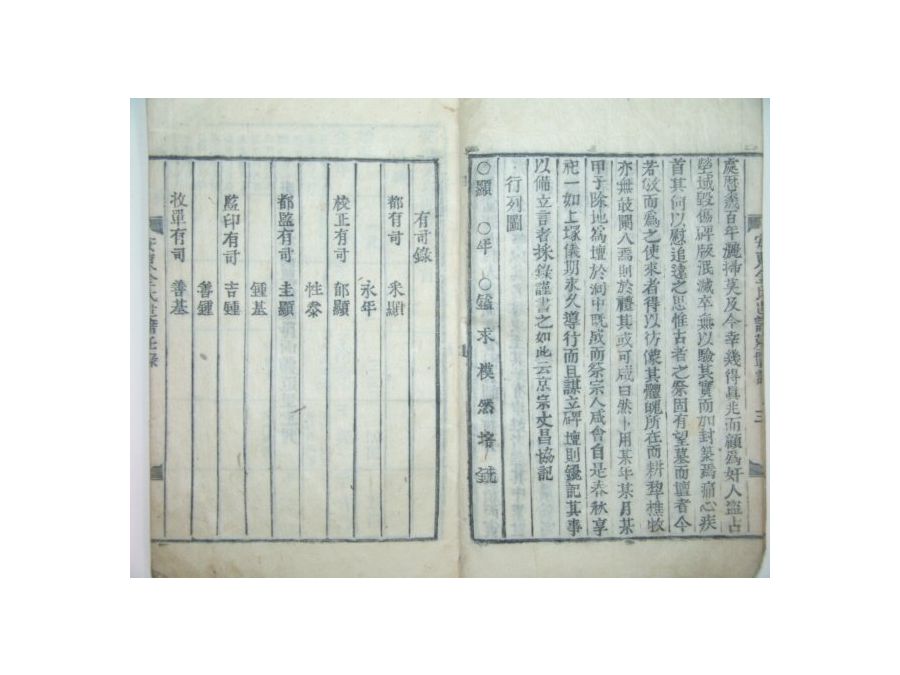 處慰奠百年灑掃莫及今幸幾得眞兆而顧爲奸人盜占
塋域毀傷碑版泯滅卒無以驗其實而加封築焉痛心疾
首其何以慰追遠之思惟古者之祭固有望墓而壇者今
若倣而爲之使來者得以彷彿其體魄所在而耕犂樵牧
亦無敢闌入焉則於禮其或可咸曰然卜用某年某月某
甲子除地爲壇於洞中旣成而祭宗人咸會自是春秋享
祀一如上塚儀期永久導行而且謀立碑壇則鑱記其事
以備立言者採錄謹書之如此云京宗丈昌協記
行列圖
○顯 ○年 ○鍾 求 模 然 培
三
有司錄
都有司 釆顯
永年
校正有司 郁顯
性泰
都監有司 圭顯
鍾基
監印有司 吉鍾
善鍾
收單有司 善基